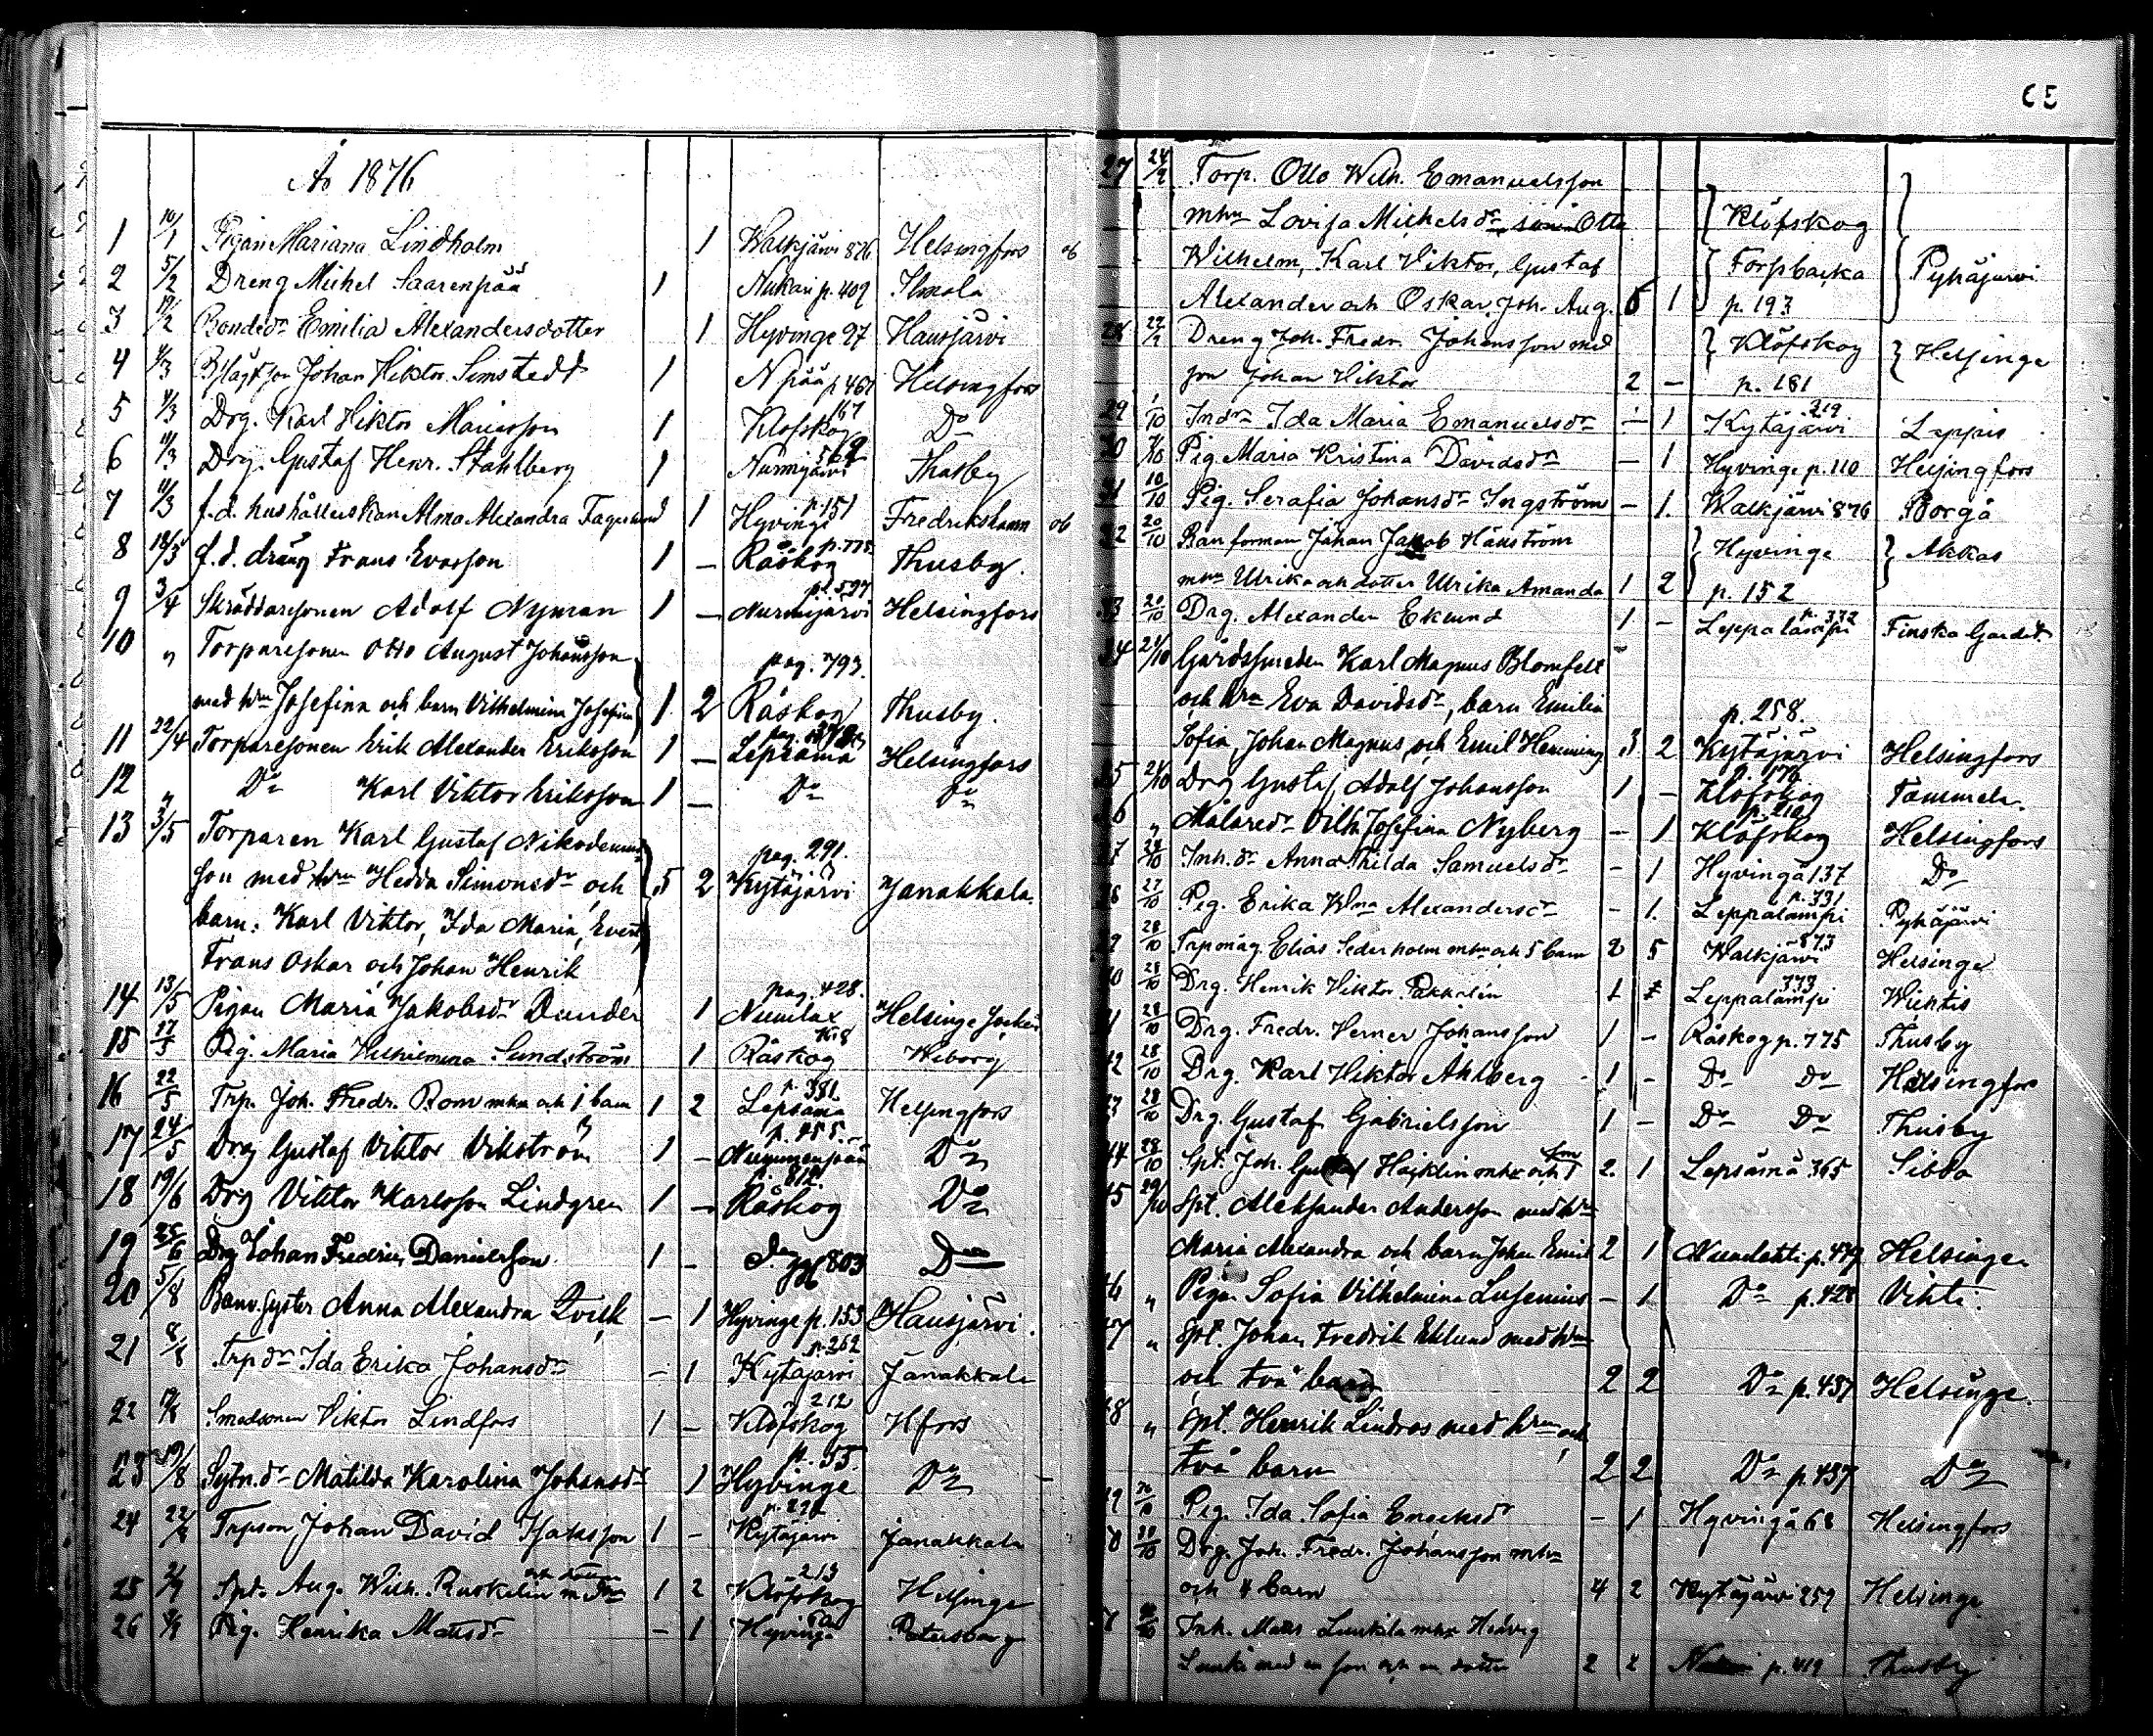 Ao 1876
1 10/1 Pigan Mariana Lindholm 1 Walkjärvi 876 Helsingfors
2 5/2 Dreng Michel Saarenpää 1 Nukari p. 409 Ilmola
3 19/2 Bondedr Emilia Alexandersdotter 1 Hyvinge 97 Hausjärvi
4 4/3 Johan Viktor Simstedt 1 N pää p 461 Helsingfors
5 4/3 Drg. Karl Viktor Mariasson 1 Klöfskog 167 Do
6 11/3 Drg. Gustaf Henr. Stahlberg 1 Nurmijärvi 569 Thusby
7 11/3 f.d. hushållerskan Alma Alexandra Fagerlund 1 Hyvinge p. 151 Fredrikshamn
8 18/3 f.d. dräng Frans Evasson 1 – Råskog p. 775 Thusby.
9 3/4 Skräddaresonen Adolf Nyman 1 – Nurmijärvi p. 597 Helsingfors
10 " Torparesonen Otto August Johansson
med hru Josefina och barn Vilhelmina Josefina 1 2 pag. 793. Råskog Thusby.
11 22/4 Torparesonen Erik Alexander Eriksson 1 – Lepsämä Helsingfors
12 " Do Karl Viktor Eriksson 1 – Do Do
13 3/5 Torparen Karl Gustaf Nikodemus-
son med hru Hedda Simonsdr och 5 2 pag. 291. Kytäjärvi Janakkala.
barn: Karl Viktor, Ida Maria, Evert,
Frans Oskar och Johan Henrik
14 13/5 Pigan Maria Jakobsdr Dunder 1 pag. 428. Numlax Helsinge
15 17/5 Pig. Maria Vilhelmina Sundström 1 Råskog Wiborg
16 22/5 Trp. Joh. Fredr. Rom mhu och 1 barn 1 2 Lepsämä p. 381 Helsingfors
17 24/5 Drg Gustaf Viktor Vikström 1 – p. 455. Do
18 19/6 Drg Viktor Karlsson Lindgren 1 – p. 812. Råskog Do
19 25/6 Drg Johan Fredrik Danielsson 1 – 803 Do
20 5/8 Banv. syster Anna Alexandra Qvick – 1 Hyvinge p. 153 Hausjärvi.
21 8/8 Trp dr Ida Erika Johansdr – 1 Kytäjärvi p. 262 Janakkala
22 Smedsonen Viktor Lindfors 1 – Klöfskog 212 Hfors
23 19/8 Sytn.dr Matilda Karolina Johansdr 1 Hyvinge p. 55. Do
24 Trpson Johan David Isaksson 1 – Kytäjärvi Janakkala
25 Spt. Aug. Wilh. Ruskelin och dotter 1 2 Klöfskog 213 Helsinge
26 Pig. Henrika Matsdr – 1 Hyvinge Petersburg
27 24/9 Torp. Otto Wilh. Emanuelsson
mhu Lovisa Michelsdr Otto Klöfskog
Wilhelm, Karl Viktor, Gustaf Torpbacka Pyhäjärvi
Alexander och Oskar, Joh. Aug. 6 1 p. 193
28 Dreng Joh. Fredr. Johansson med Klöfskog Helsinge
son Johan Viktor 2 – p. 181
29 Indr Ida Maria Emanuelsdr – 1 Kytäjärvi 219. Leppis
30 Pig. Maria Kristina Davidsdr – 1 Hyvinge p. 110 Helsingfors
31 10/10 Pig. Serafia Johansdr Ingström – 1. Walkjärvi 876 Borgå
32 20/10 Banforman Johan Jakob Hänström Hyvinge Akkas
mhu Ulrika och dotter Ulrika Amanda 1 2 p. 152
33 20/10 Drg. Alexander Eklund 1 – Leppalampi p. 372 Finska Gardet
34 21/10 Gårdssmeden Karl Magnus Blomfelt
och hru Eva Davidsdr, barn Emilia p. 258.
Sofia, Johan Magnus och Emil Henning 3 2 Kytäjärvi Helsingfors
35 21/10 Drg Gustaf Adolf Johansson 1 – Klöfskog p. 176 Tammela.
36 " Målaredr Vilh. Josefina Nyberg – 1 Klöfskog p. 210 Helsingfors
37 24/10 Inh.dr Anna Thilda Samuelsdr – 1 Hyvingä 137 Do
38 27/10 Pig. Erika Wma Alexandersdr – 1. Leppalampi p. 331 Pyhäjärvi
39 28/10 Elias Sederholm mhu och 5 barn 2 5 Walkjärvi 873 Helsinge
40 28/10 Drg. Henrik Viktor Pakkalin Leppalampi 333 Wichtis
41 28/10 Drg. Fredr. Verner Johansson 1 – Råskog p. 775 Thusby
42 28/10 Drg. Karl Viktor Ahlberg 1 – Do Do Helsingfors
43 28/10 Drg. Gustaf Gabrielsson 1 – Do Do Thusby
44 28/10 Spt. Joh. Gustaf Hajklin mhu och 1 2. 1 Lepsämä 365 Sibbo
45 29/10 Spt. Aleksander Andersson med hru
Maria Alexandra och barn Johan Emil 2 1 p. 479 Helsinge
46 " Pigan Sofia Vilhelmina Lusenius – 1 Do p. 428 Vihti.
47 " Spt. Johan Fredrik Eklund med hru
och två barn 2 2 Do p. 437 Helsinge.
48 " Spt. Henrik Lindros med hru och
två barn 2 2 Do p. 437 Do
49 Pig. Ida Sofia Enocksdr – 1 Hyvingä 68 Helsingfors
50 30/10 Drg. Joh. Fredr. Johansson mhu
och 4 barn 4 2 Kytäjärvi 259 Helsinge
Inh. Mats Luukila mhu Hedvig
med en son och en dotter 2 2 p. 419 Thusby